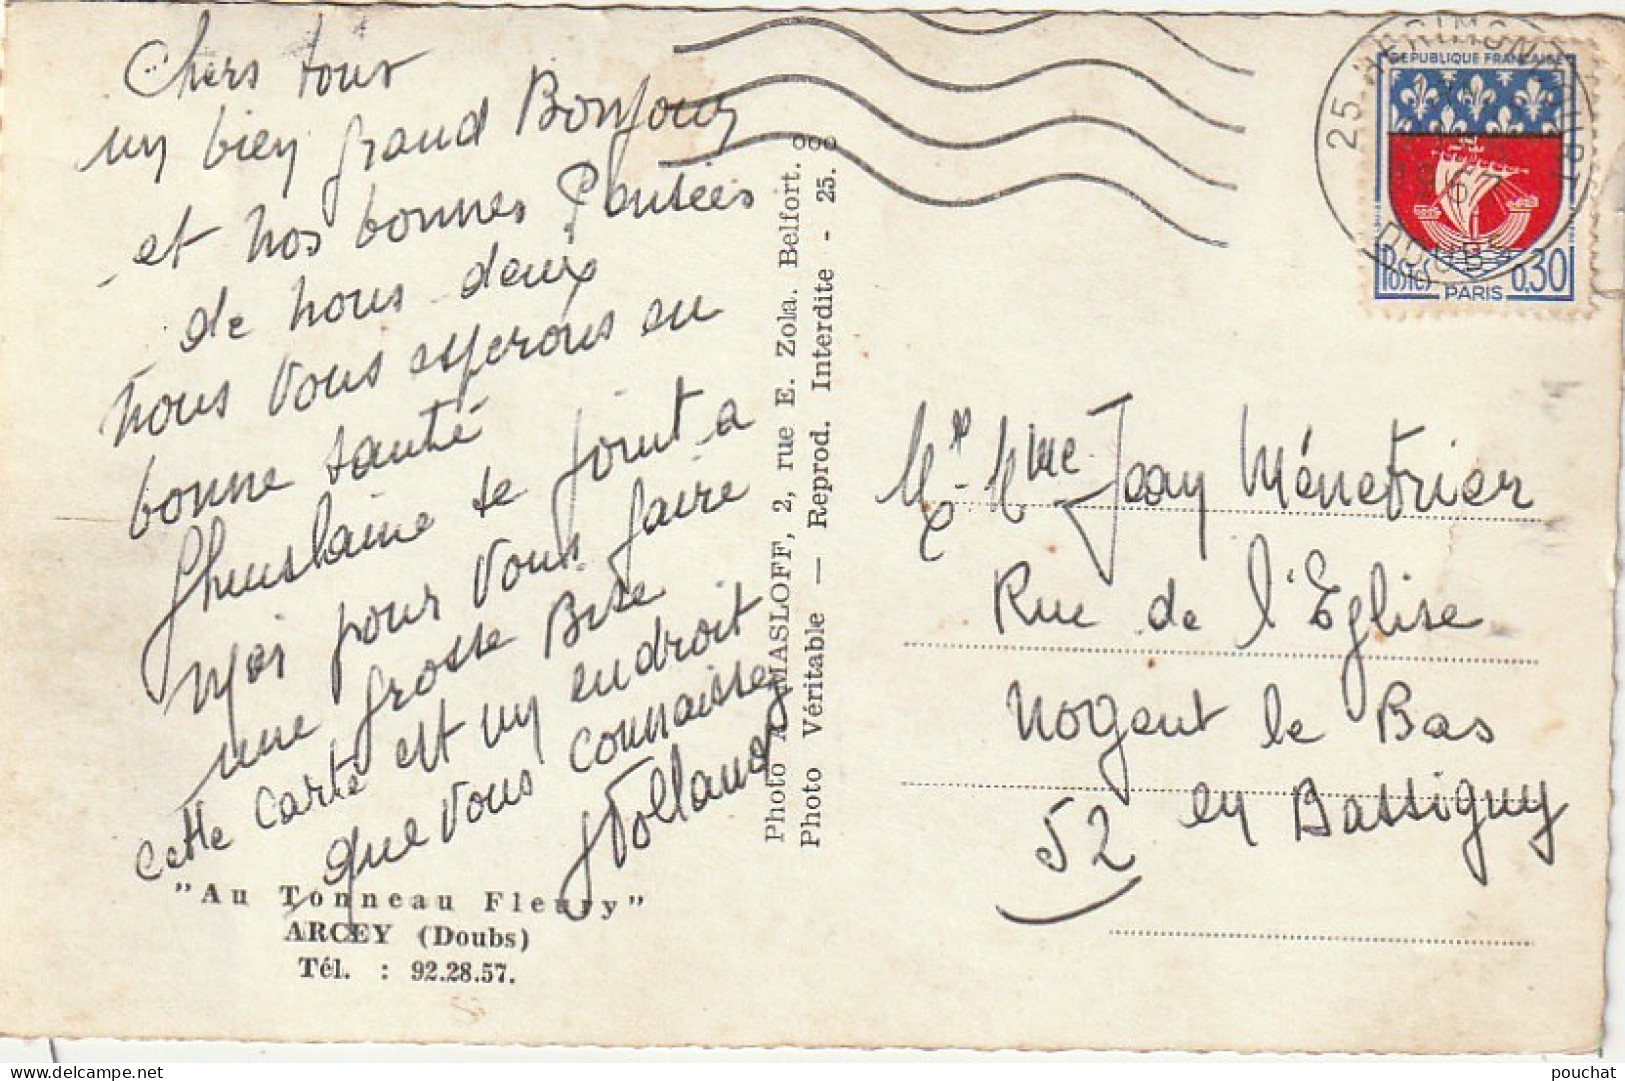 Chers tous
un bien grand Bonjour
et nos bonnes Pensées
de nous deux
nous vous esperons en
bonne santé
Ghuislaine se joint a
moi pour vous faire
une grosse Bise
cette carte est un endroit
que vous connaissez
"Au Tonneau Fleury"
ARCEY (Doubs)
Tél. : 92.28.57.
Photo A. MASLOFF, 2, rue E. Zola. Belfort.
Photo Véritable — Reprod. Interdite - 25.
25
DOUBS
REPUBLIQUE FRANÇAISE
POSTES
0,30
PARIS
Mr. Mme Jean Ménetrier
Rue de l'Eglise
Nogent le Bas
52 en Bassigny
delcampe.net
pouchat